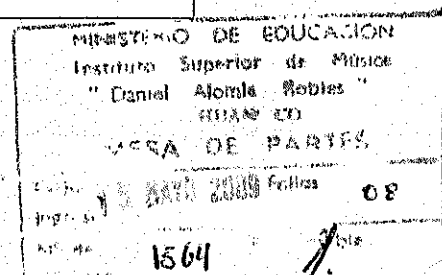 MINISTERIO DE EDUCACIÓN
Instituto Superior de Música
" Daniel Alomía Robles "
HUANUCO
MESA DE PARTES
15 MAYO 2009 Folios 08
1564